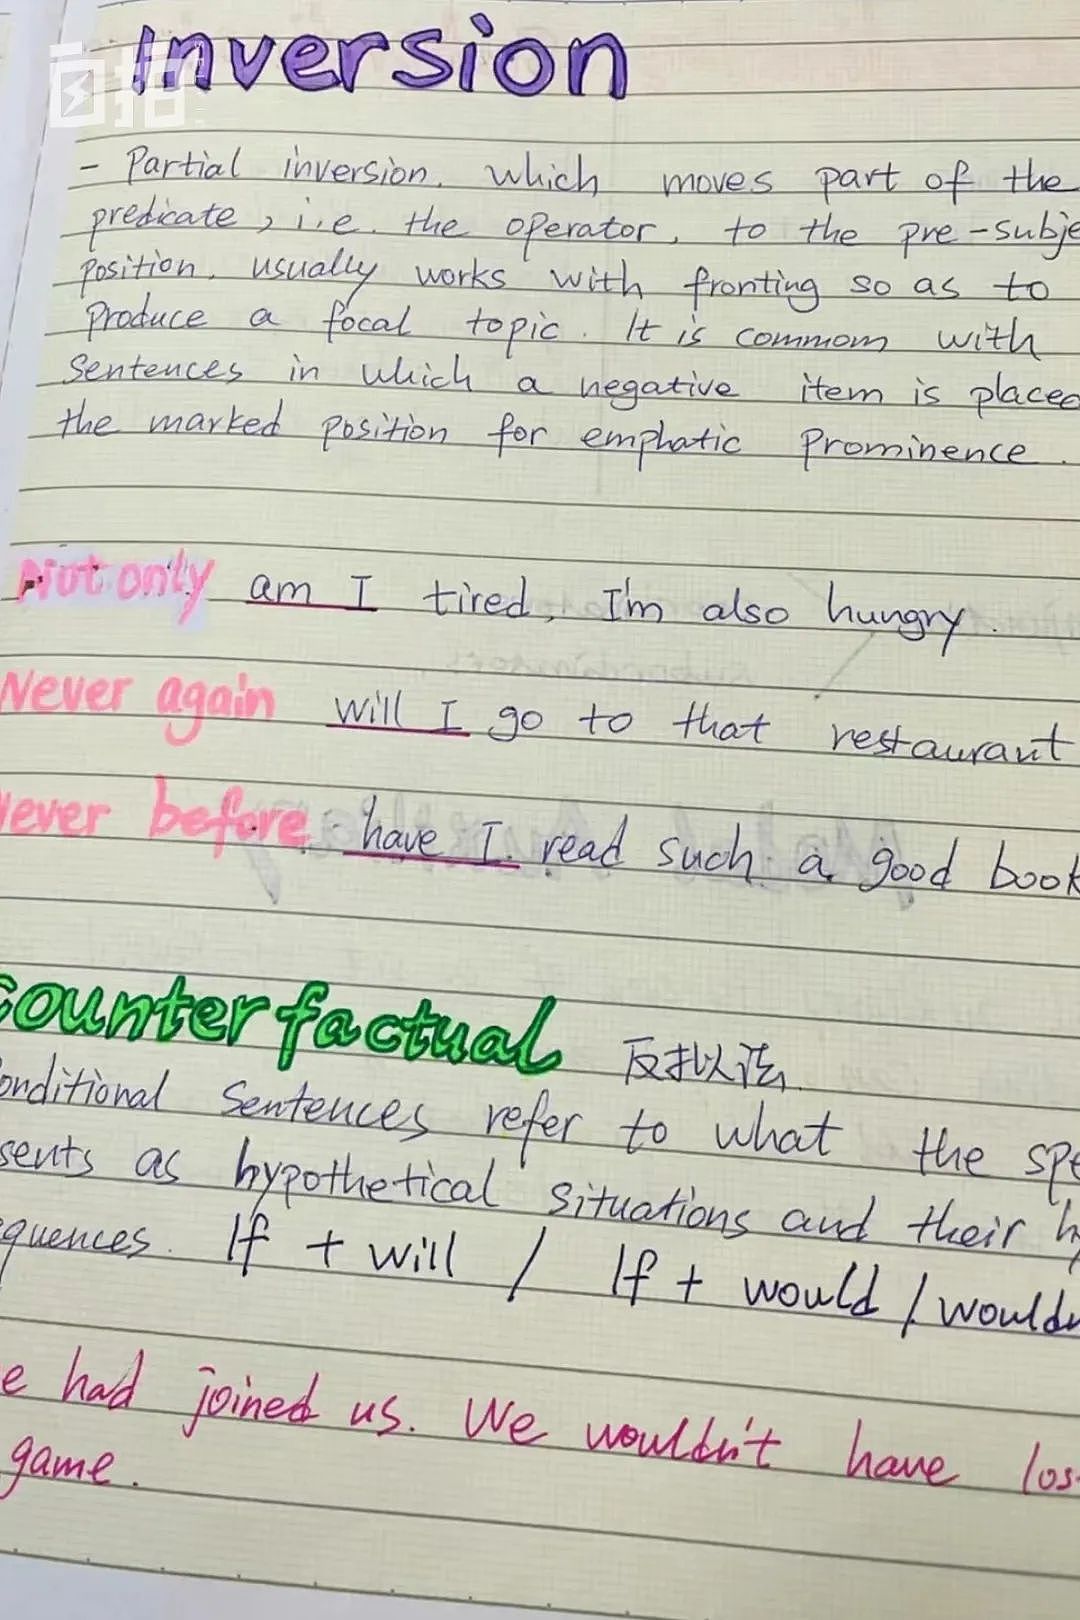 自拍
Inversion
- Partial inversion, which moves part of the
predicate, i.e. the operator, to the pre-subje
position, usually works with fronting so as to
produce a focal topic. It is commom with
Sentences in which a negative item is placed
the marked position for emphatic Prominence.
Not only am I tired, I'm also hungry.
Never again will I go to that restaurant
Never before have I read such a good book
Counterfactual 反拟以法
Conditional Sentences refer to what the spe
sents as hypothetical situations and their hy
quences. If + will / If + would / wouldn
e had joined us. We wouldn't have los
game.